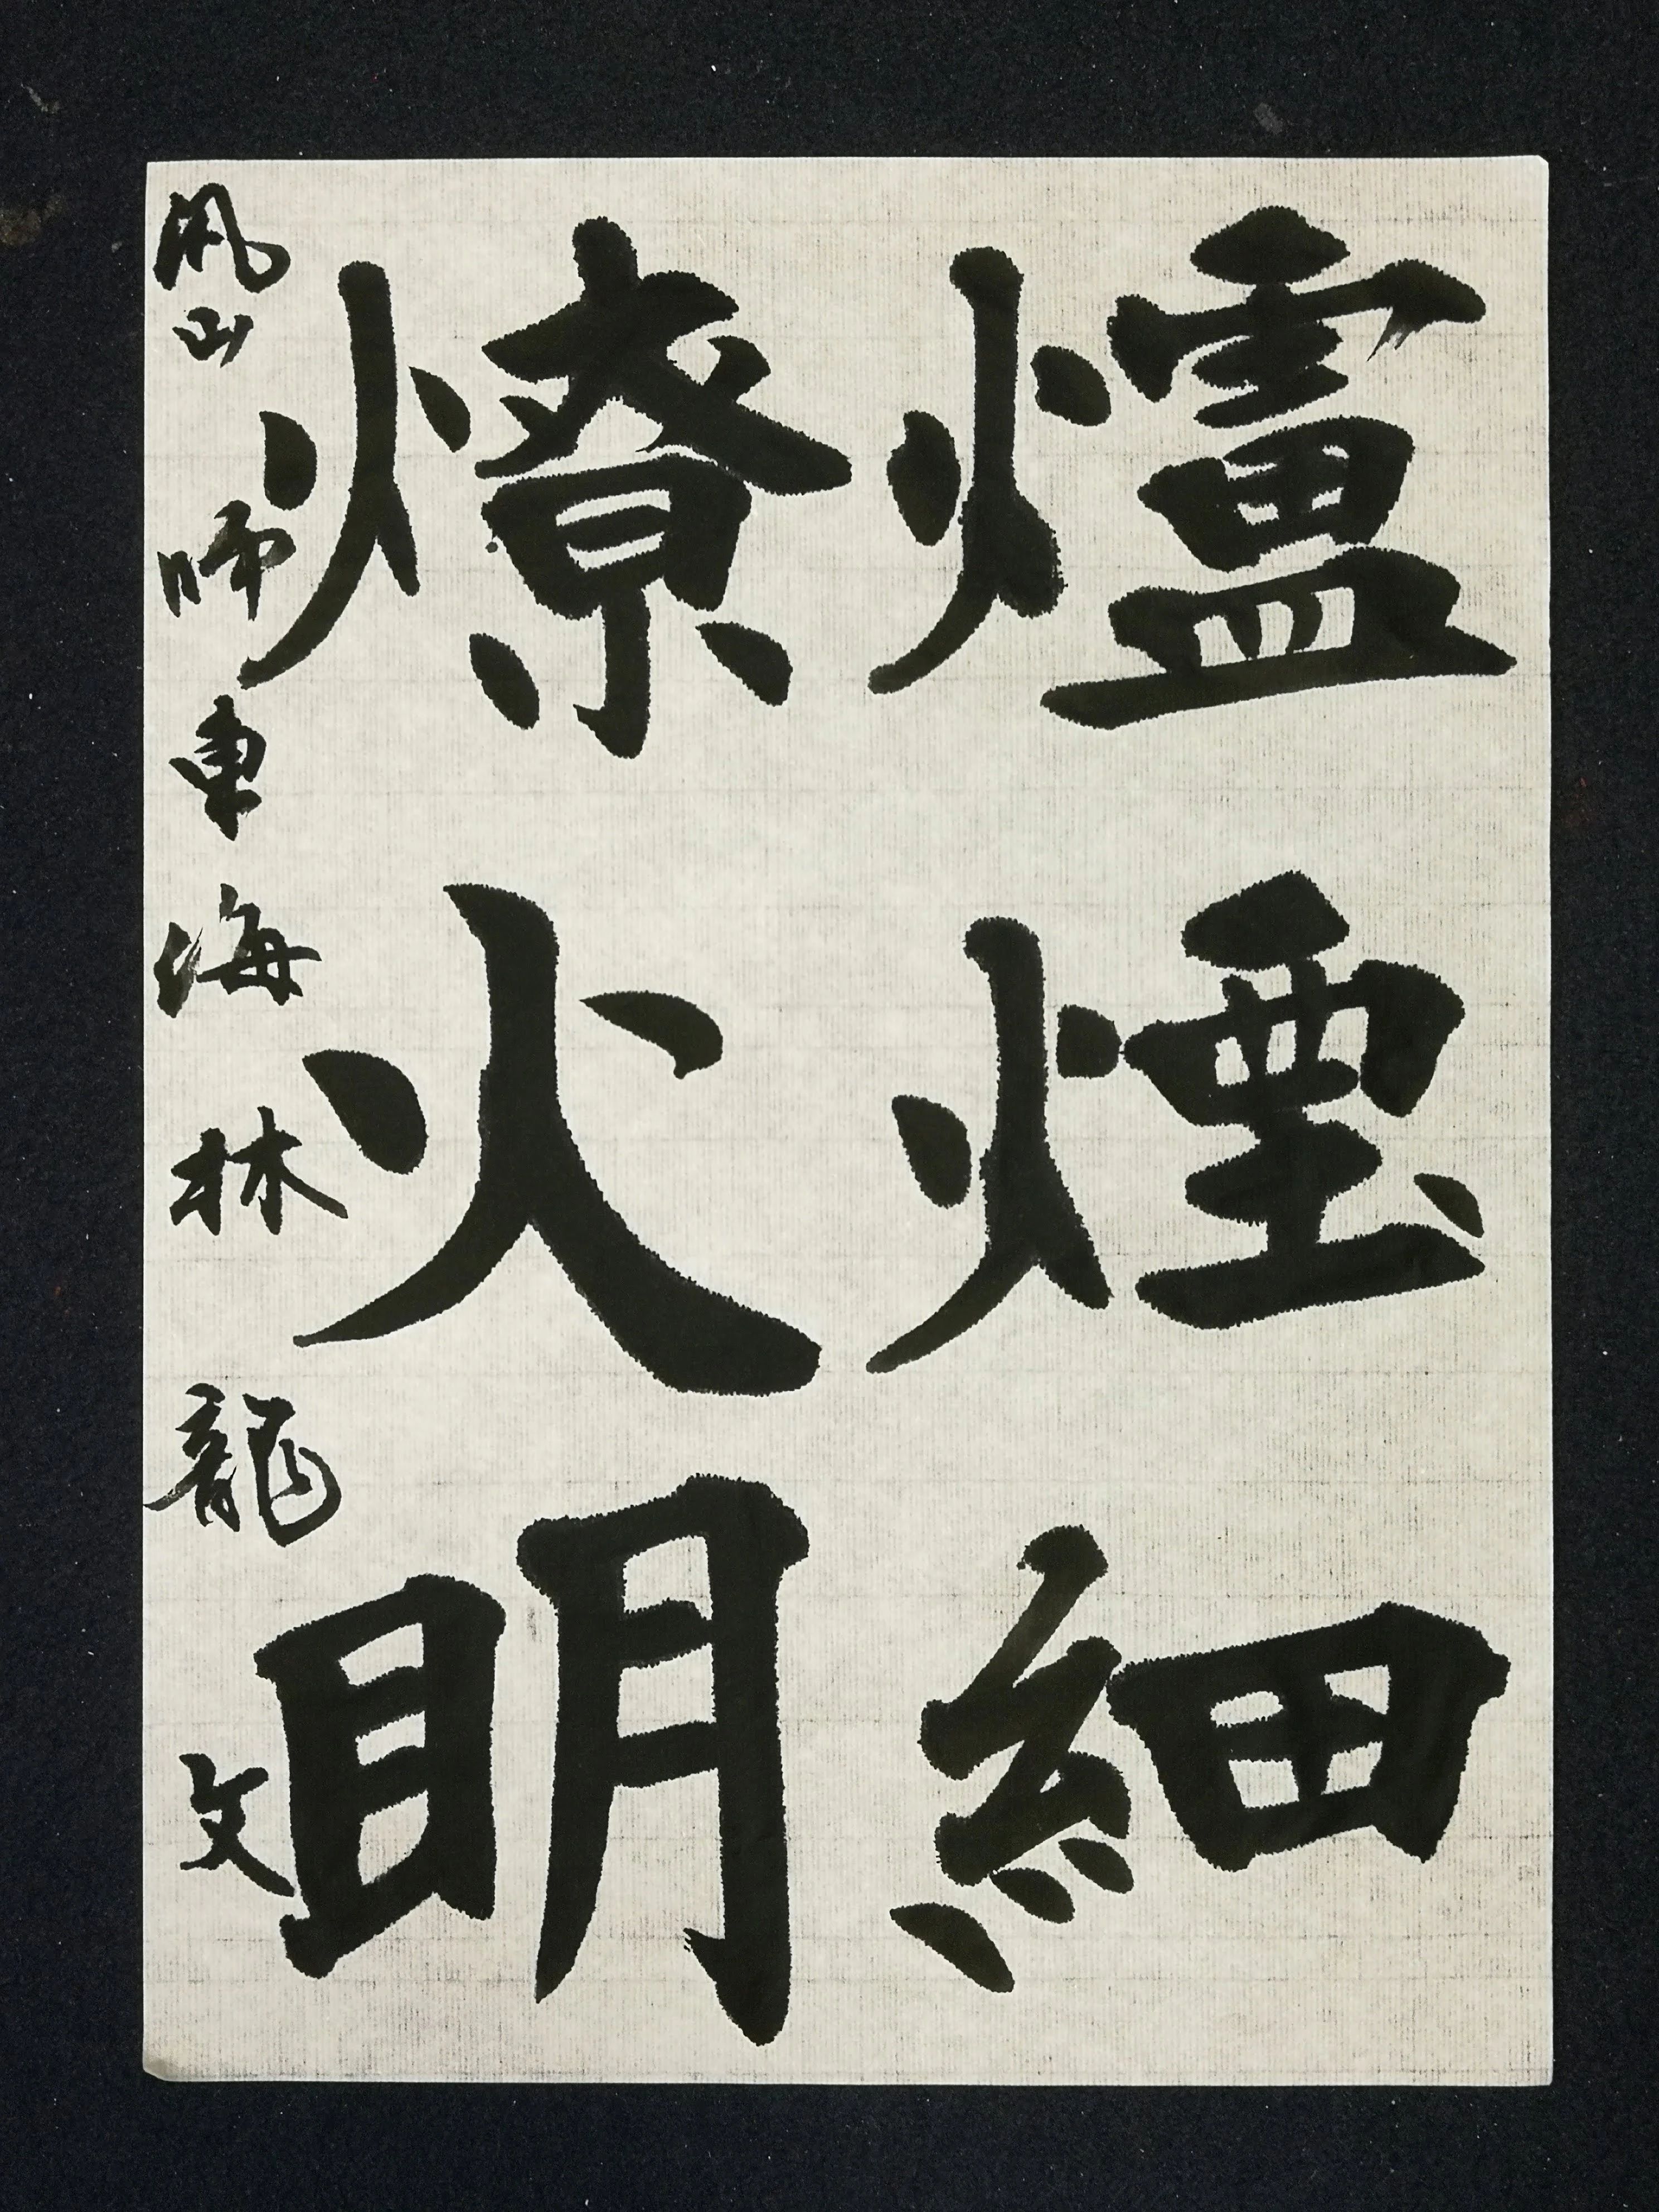 爐煙細
燎火明
風山師東海林龍文